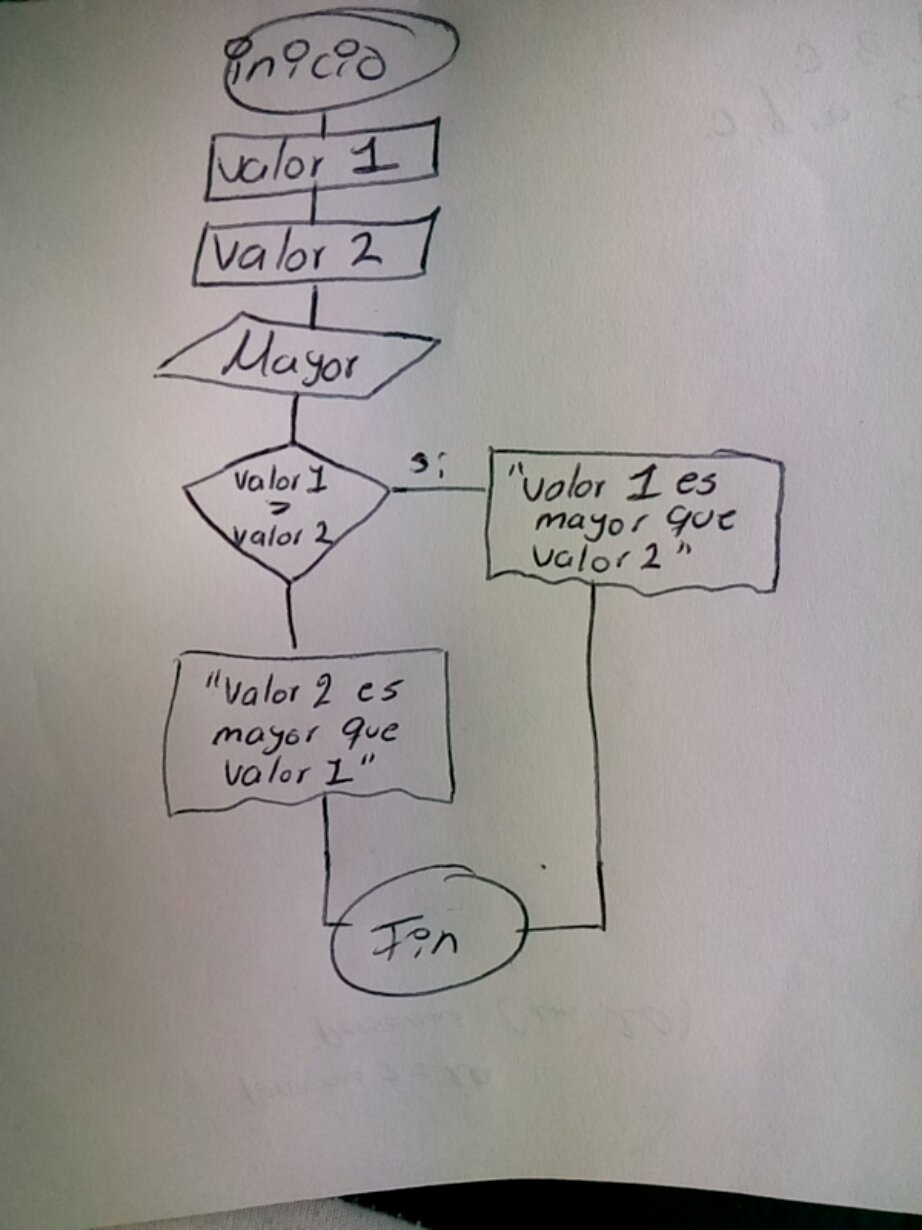 inicio
valor 1
valor 2
Mayor
valor 1
>
valor 2
si
"valor 1 es
mayor que
valor 2"
"valor 2 es
mayor que
valor 1"
Fin